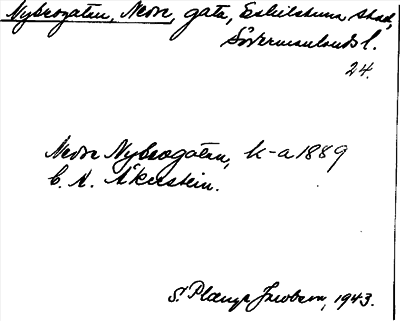 Nybrogatan, Nedre, gata, Eskilstuna stad,
Södermanlands l.
24.
Nedre Nybrogatan, k-a 1889
C. A. Åkerstein.
S. Plænge Jacobson, 1943.